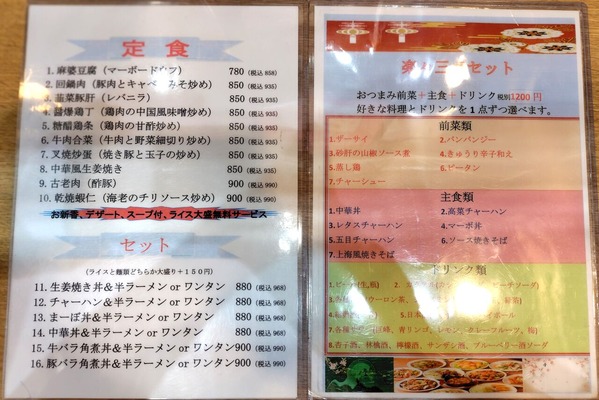 定食
1. 麻婆豆腐（マーボードウフ） 780（税込 858）
2. 回鍋肉（豚肉とキャベツみそ炒め） 850（税込 935）
3. 韮菜豚肝（レバニラ） 850（税込 935）
4. 醤爆鶏丁（鶏肉の中国風味噌炒め） 850（税込 935）
5. 糖醋鶏条（鶏肉の甘酢炒め） 850（税込 935）
6. 牛肉合菜（牛肉と野菜細切り炒め） 850（税込 935）
7. 叉焼炒蛋（焼き豚と玉子の炒め） 850（税込 935）
8. 中華風生姜焼き 850（税込 935）
9. 古老肉（酢豚） 900（税込 990）
10. 乾焼蝦仁（海老のチリソース炒め） 900（税込 990）
お新香、デザート、スープ付、ライス大盛無料サービス
セット
（ライスと麺類どちらか大盛り＋１５０円）
11. 生姜焼き丼＆半ラーメン or ワンタン 880（税込 968）
12. チャーハン＆半ラーメン or ワンタン 880（税込 968）
13. まーぼ丼＆半ラーメン or ワンタン 880（税込 968）
14. 中華丼＆半ラーメン or ワンタン 880（税込 968）
15. 牛バラ角煮丼＆半ラーメン or ワンタン 900（税込 990）
16. 豚バラ角煮丼＆半ラーメン or ワンタン 900（税込 990）
三 セット
おつまみ前菜＋主食＋ドリンク 税別1200 円
好きな料理とドリンクを 1 点ずつ選べます。
前菜類
1.ザーサイ 2.バンバンジー
3.砂肝の山椒ソース煮 4.きゅうり辛子和え
5.蒸し鶏 6.ピータン
7.チャーシュー
主食類
1.中華丼 2.高菜チャーハン
3.レタスチャーハン 4.マーボ丼
5.五目チャーハン 6.ソース焼きそば
7.上海風焼きそば
ドリンク類
1. ビール(生,瓶) 2. ピーチソーダ)
3. ウーロン茶、
4. 5.日本 ボール
7.各種 巨峰、青リンゴ、レモン、グレープフルーツ、梅)
8.杏子酒、林檎酒、檸檬酒、サンザシ酒、ブルーベリー酒ソーダ